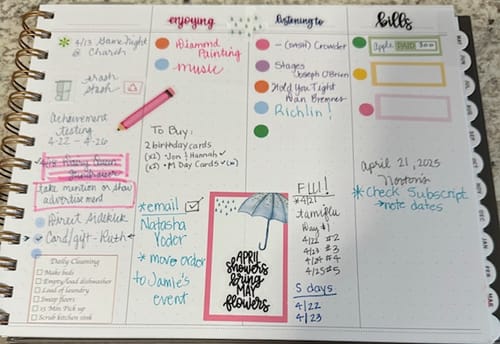 * 4/13 Game Night @ Church
trash stash
Achievement testing
4/22 - 4/26
Fundraiser
take mention or show advertisement
Direct Sidekick
Card/gift - Ruth
Daily Cleaning
Make beds
Empty/load dishwasher
Load of laundry
Sweep floors
15 Min Pick up
Scrub kitchen sink
enjoying
Diamond Painting
music
To Buy:
2 birthday cards
(x2) - Jon & Hannah ✓
(x2) • M Day Cards ✓
*email
Natasha Yoder
* move order to Jamie's event
APRIL
showers
bring
MAY
flowers
listening to
Crowder
Stages
Joseph O'Brien
Hold You Tight
Richlin!
FLU!
*4/21
tamiflu
Day #1
4/22 #2
4/23 #3
4/24 #4
4/25 #5
5 days
4/22
4/23
bills
Apple PAID
April 21, 2025
Norton's
*check Subscript
→note dates
MAY
JUN
MAR